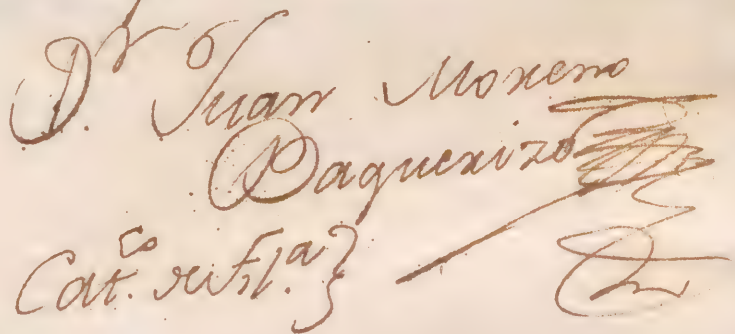 D.r Juan Moreno
Baquerizo
Cat.co de Fil.a }